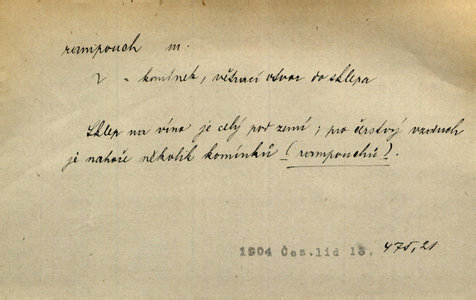 rampouch m.
2 = komínek, větrací otvor do sklepa
Sklep na víno je celý pod zemí; pro čerstvý vzduch
je nahoře několik komínků (rampouchů).
1904 Čes.lid 13. 475,21